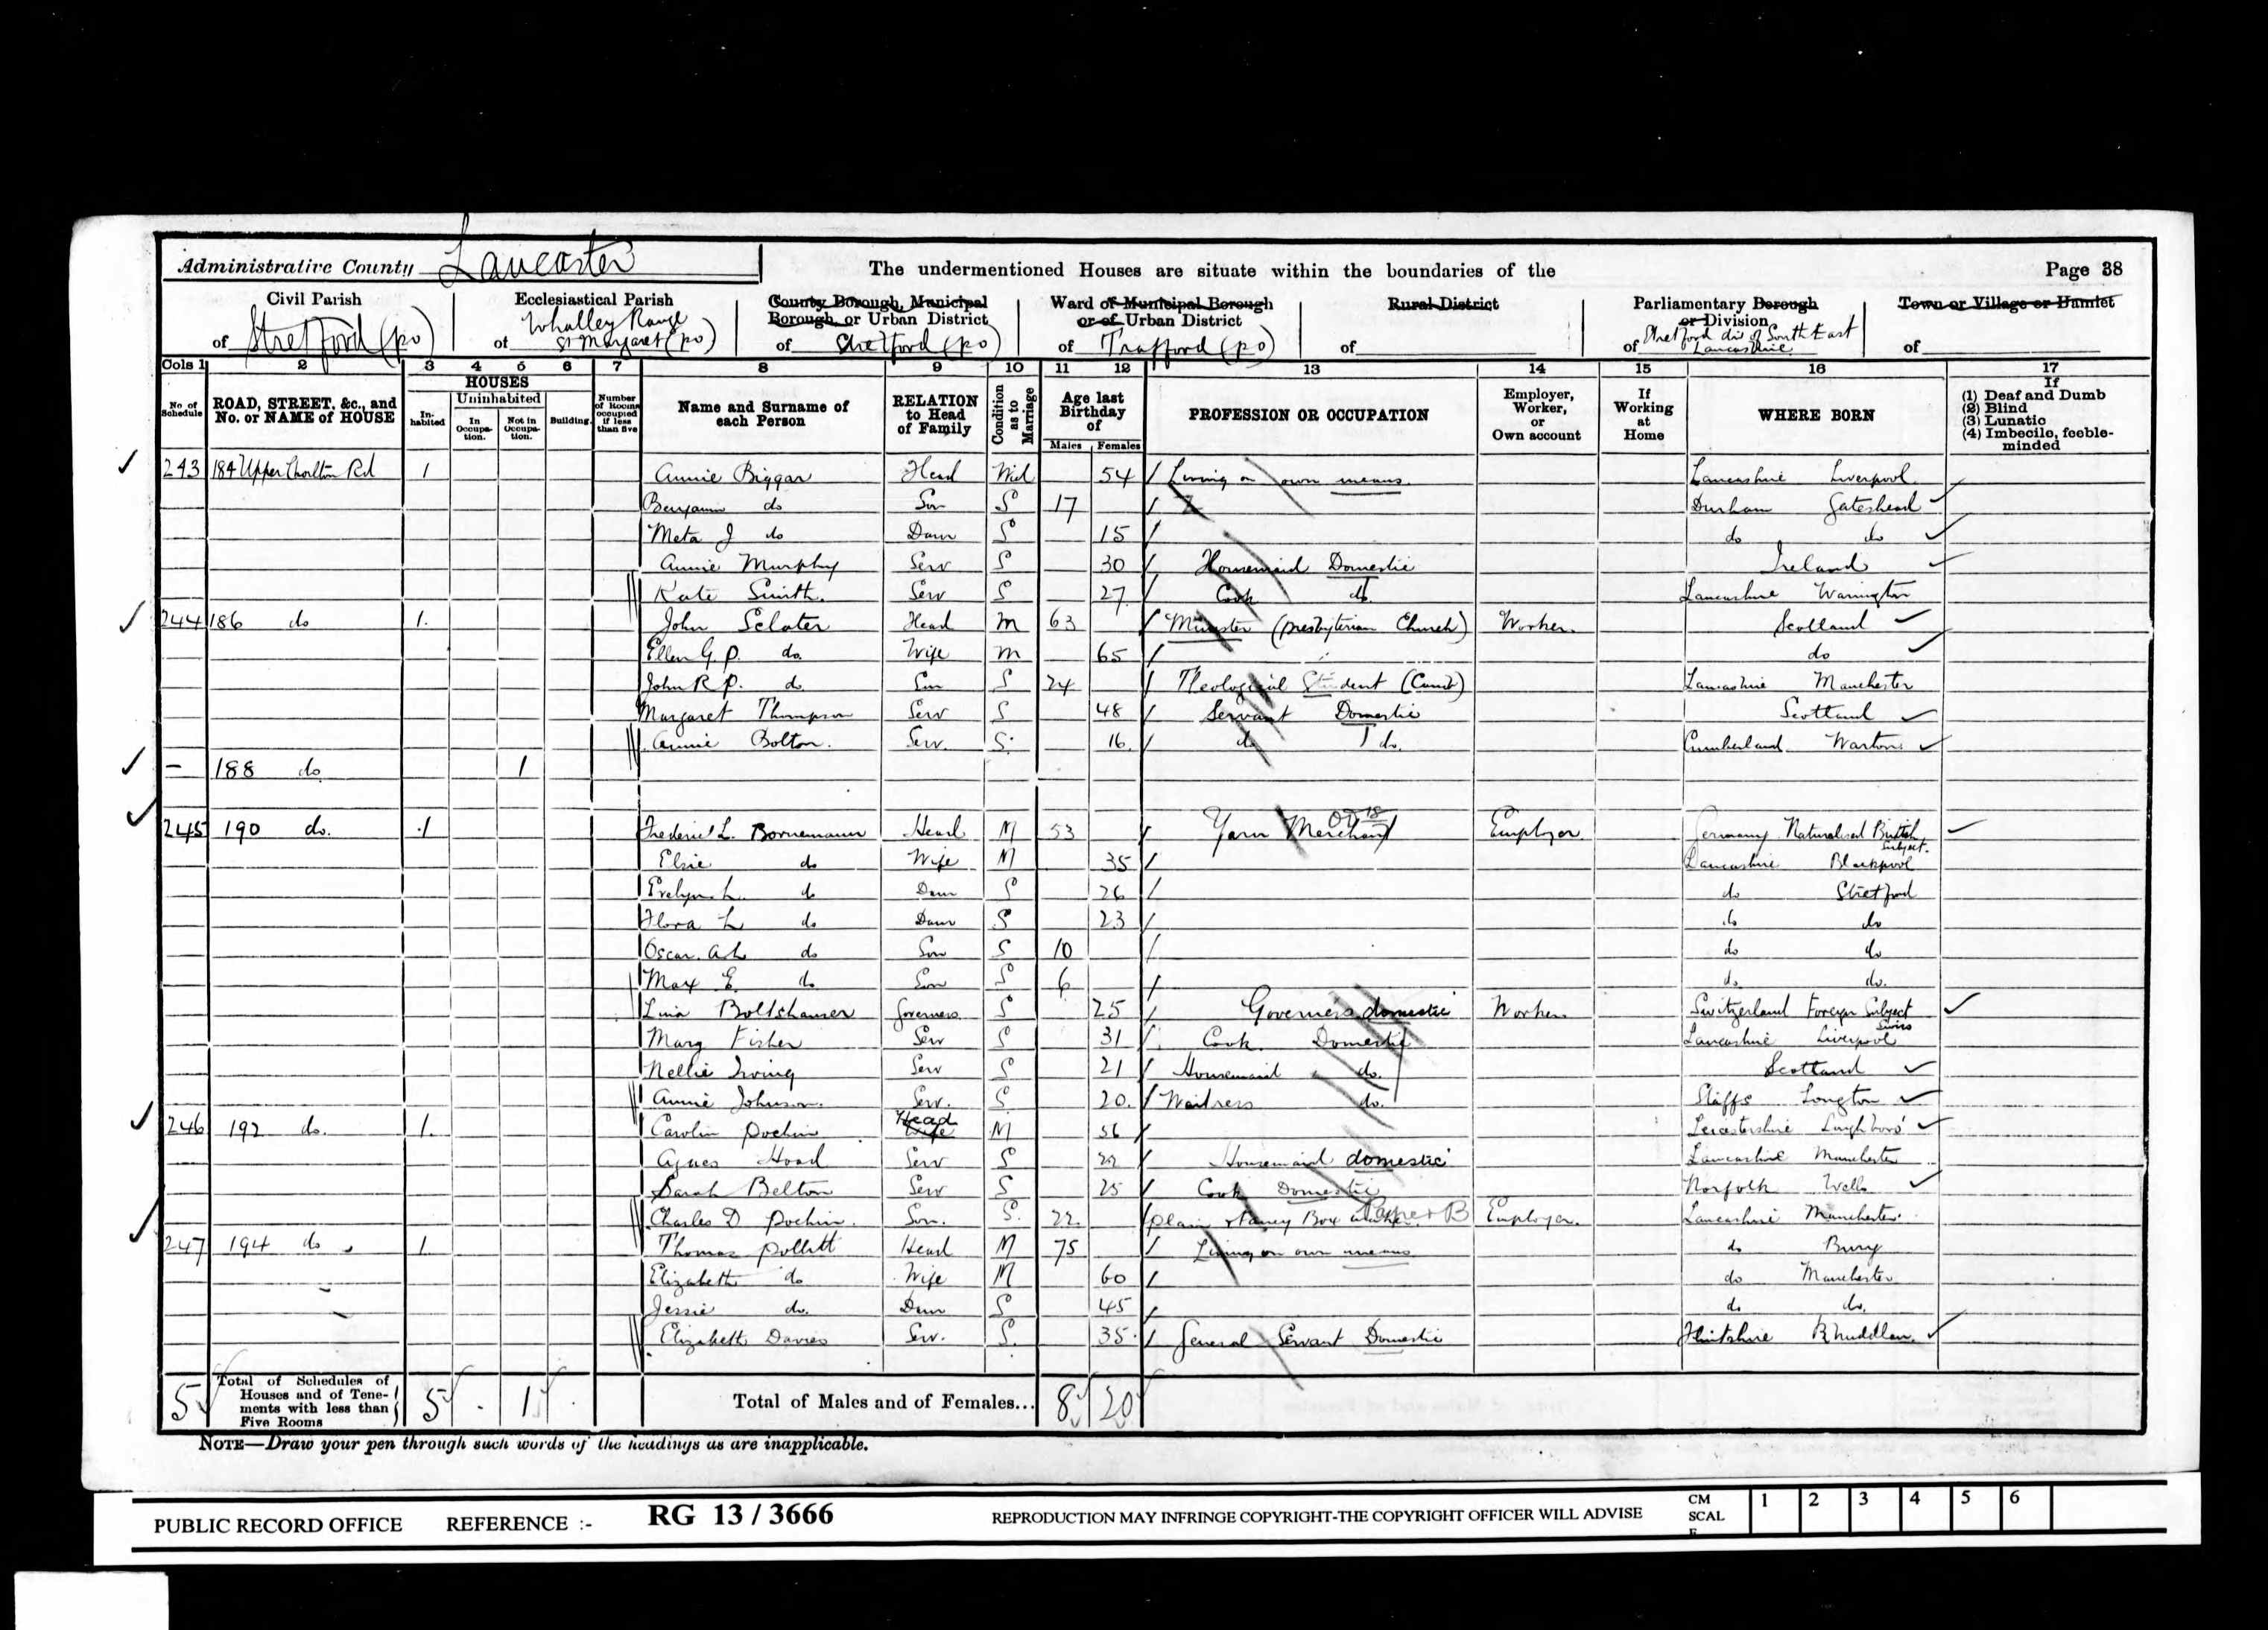 Administrative County Lancaster
The undermentioned Houses are situate within the boundaries of the
Page 38
Civil Parish
of Stretford (po)
Ecclesiastical Parish
of Whalley Range
St Margaret (po)
County Borough, Municipal
Borough or Urban District
of Stretford (po)
Ward of Municipal Borough
or of Urban District
of Trafford (po)
Rural District
of
Parliamentary Borough
or Division
of Stretford div of South East
Lancashire
Town or Village or Hamlet
of
Cols 1 2 3 4 5 6 7 8 9 10 11 12 13 14 15 16 17
No. of Schedule
ROAD, STREET, &c., and No. or NAME of HOUSE
HOUSES
In-habited
Uninhabited
In Occupa-tion.
Not in Occupa-tion.
Building.
Number of Rooms occupied if less than five
Name and Surname of each Person
RELATION to Head of Family
Condition as to Marriage
Age last Birthday of
Males Females
PROFESSION OR OCCUPATION
Employer, Worker, or Own account
If Working at Home
WHERE BORN
If
(1) Deaf and Dumb
(2) Blind
(3) Lunatic
(4) Imbecile, feeble-minded
243 184 Upper Chorlton Rd 1 Annie Biggar Head Wid 54 Living on own means Lancashire Liverpool
Benjamin do Son S 17 Durham Gateshead
Meta J do Daur S 15 do do
Annie Murphy Serv S 30 Housemaid Domestic Ireland
Kate Smith. Serv S 27 Cook do. Lancashire Warrington
244 186 do 1. John Sclater Head M 63 Minister (Presbyterian Church) Worker. Scotland
Ellen G. P. do. Wife M 65 do
John R P. do Son S 24 Theological Student (Camb) Lancashire Manchester
Margaret Thompson Serv S 48 Servant Domestic Scotland
Annie Bolton. Serv. S. 16. do do. Cumberland Warton.
– 188 do 1
245 190 do. 1 Frederic L. Bornemann Head M 53 Yarn Merchant Employer Germany Naturalised British
Subject.
Elsie do Wife M 35 Lancashire Blackpool
Evelyn L. do Daur S 26 do Stretford
Flora L do Daur S 23 do do
Oscar. A L do Son S 10 do do
Max E. do Son S 6 do. do.
Lina Boltshauser Governess S 25 Governess domestic Worker Switzerland Foreign Subject
Swiss
Mary Fisher Serv S 31 Cook Domestic Lancashire Liverpool
Nellie Irving Serv S 21 Housemaid do. Scotland
Annie Johnson. Serv. S 20. Waitress do. Staffs Longton
246 192 do. 1. Carolin Pochin Wife Head M 56 Leicestershire Lughboro'
Agnes Hoad Serv S 22 Housemaid domestic Lancashire Manchester
Sarah Belton Serv S 25 Cook Domestic Norfolk Wells
Charles D Pochin. Son. S. 22. Plain & Fancy Box maker. Paper B Employer. Lancashire Manchester.
247 194 do 1 Thomas Pollitt Head M 75 Living on own means do Bury
Elizabeth do Wife M 60 do Manchester
Jessie do. Daur S 45 do do.
Elizabeth Davies Serv. S. 35. General Servant Domestic Flintshire Rhuddlan.
5 Total of Schedules of Houses and of Tene-ments with less than Five Rooms 5 . 1 . Total of Males and of Females... 8 20
NOTE—Draw your pen through such words of the headings as are inapplicable.
PUBLIC RECORD OFFICE REFERENCE :- RG 13 / 3666 REPRODUCTION MAY INFRINGE COPYRIGHT-THE COPYRIGHT OFFICER WILL ADVISE
CM SCALE 1 2 3 4 5 6